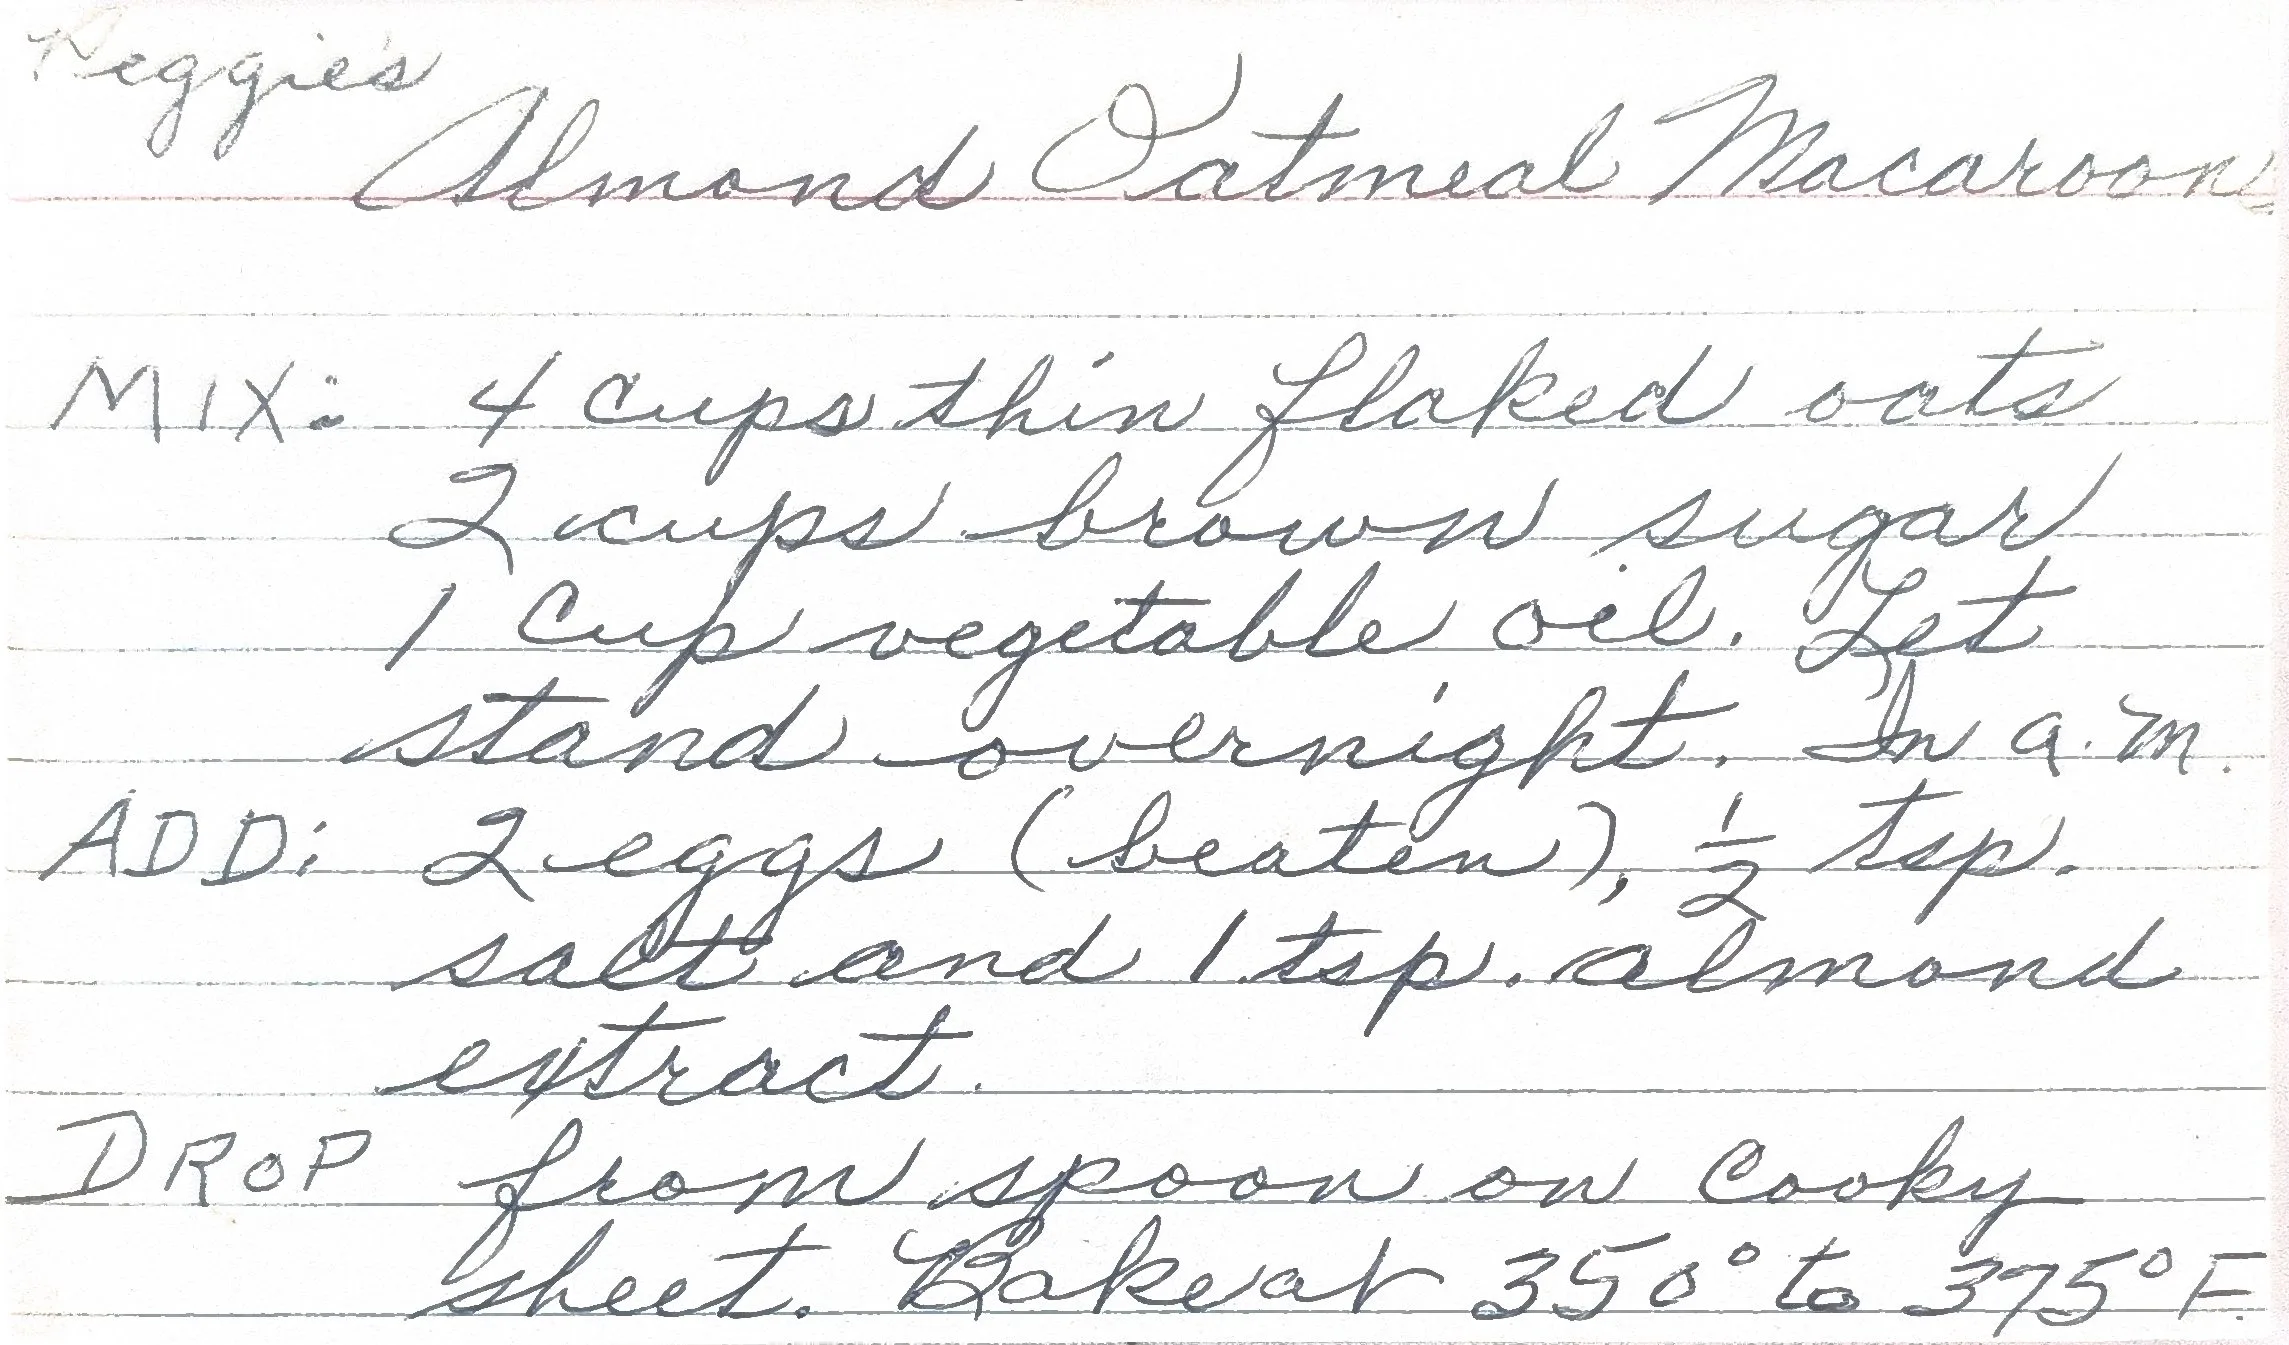 Reggie's
Almond Oatmeal Macaroons
MIX: 4 cups thin flaked oats
2 cups brown sugar
1 cup vegetable oil. Let
stand overnight. In a.m.
ADD: 2 eggs (beaten), 1/2 tsp.
salt and 1 tsp. almond
extract.
DROP from spoon on cooky
sheet. Bake at 350° to 375° F.